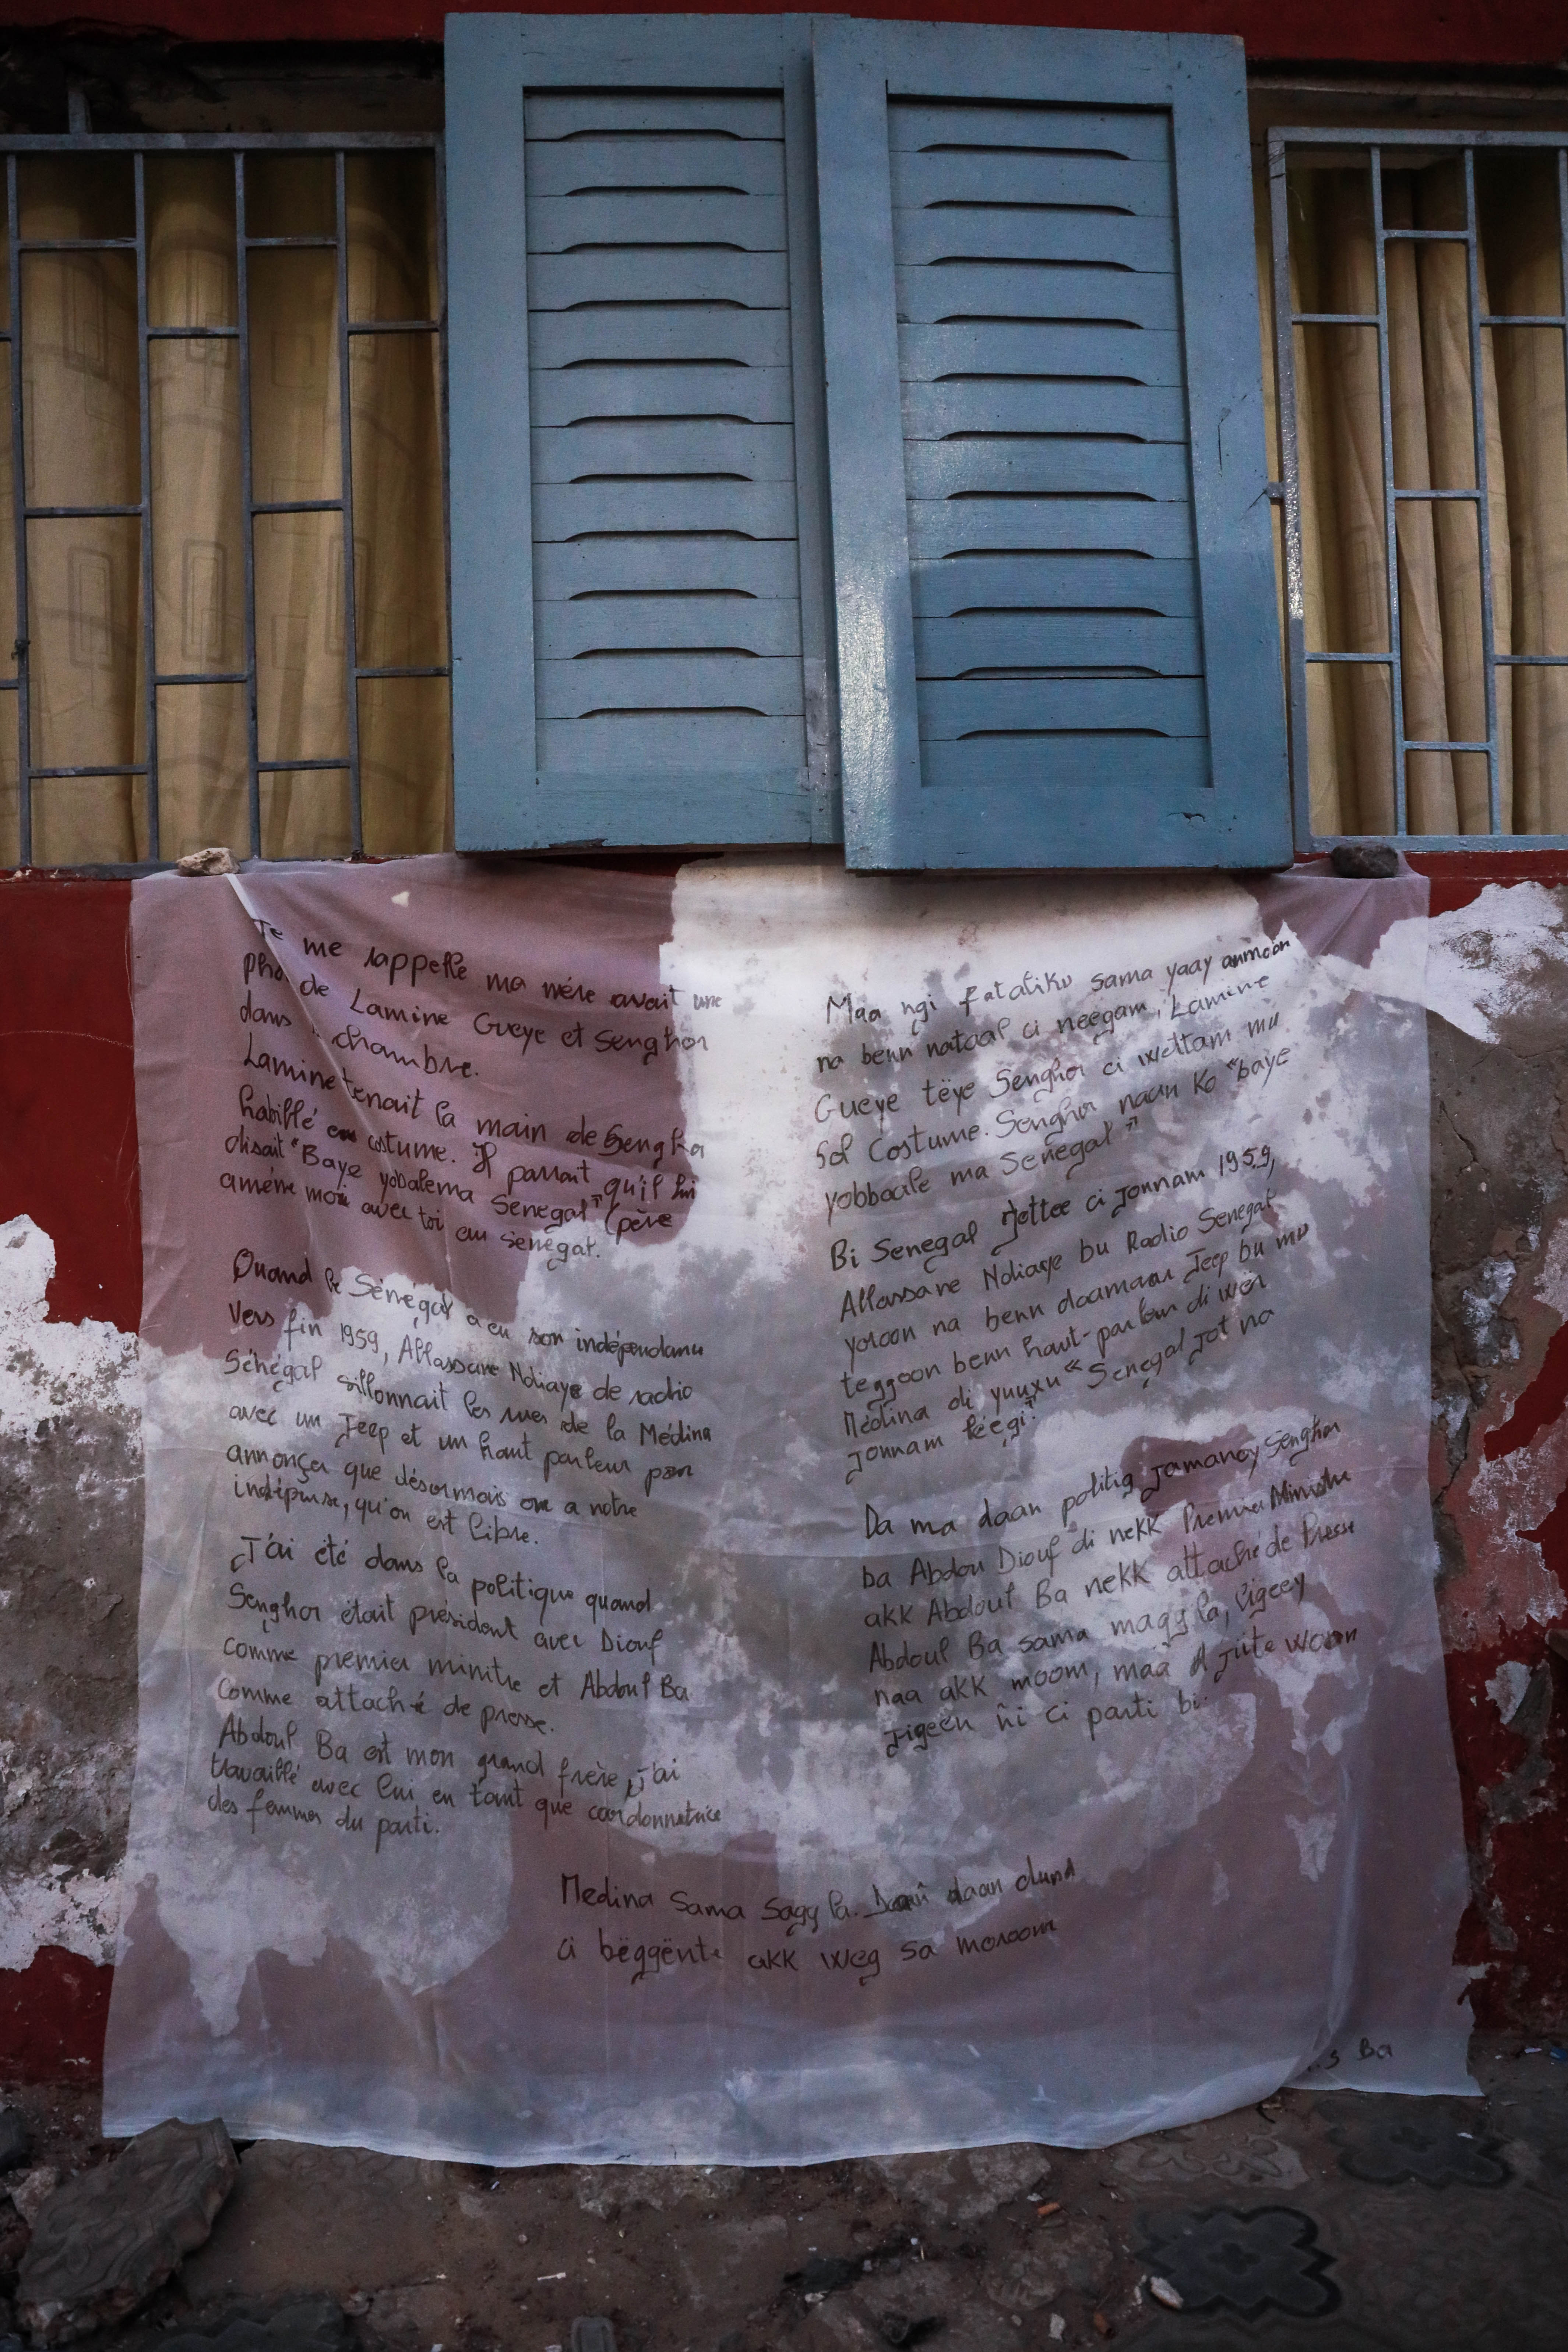 Je me rappelle ma mère avait une
pho de Lamine Gueye et Senghor
dans chambre.
Lamine tenait la main de Sengho
habillé en costume. Il parrait qu'il lui
disait "Baye yobalema Senegal" (père
améne moi avec toi au senegal.
Quand le Sénégal a eu son indépendanu
Vers fin 1959, Allassane Ndiaye de radio
Sénégal sillonnait les rues de la Médina
avec un Jeep et un haut parleur pour
annonçer que désormais on a notre
indépense, qu'on est libre.
J'ai été dans la politique quand
Senghor était président avec Diouf
comme premier minitre et Abdoul Ba
comme attaché de presse.
Abdoul Ba est mon grand frère, j'ai
travaillé avec lui en tant que cordonnatrice
des femmes du parti.
Maa ngi fataliku sama yaay amoon
na benn nataal ci neegam, Lamine
Gueye tëye Senghor ci wettam mu
Sol Costume. Senghor naan ko "baye
yobbaale ma Senegal"
Bi Senegal jottee ci jonnam 1959,
Allassane Ndiaye bu Radio Senegal
yoroon na benn daamaar Jeep bu mu
teggoon benn haut-parleur di wër
Médina di yuuxu "Senegal jot na
jonnam léegi."
Da ma daan politig jamanoy Senghor
ba Abdou Diouf di nekk Premier Ministre
akk Abdoul Ba nekk attaché de Presse
Abdoul Ba sama magg la, ligeey
naa akk moom, maa jiite woon
jigeen ñi ci parti bi.
Medina sama sagg la. Daan dund
ci bëggënte akk weg sa moroom
Ba